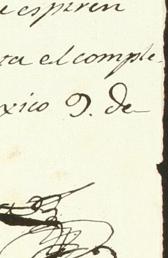 e espiren
ra el comple-
xico 9. de